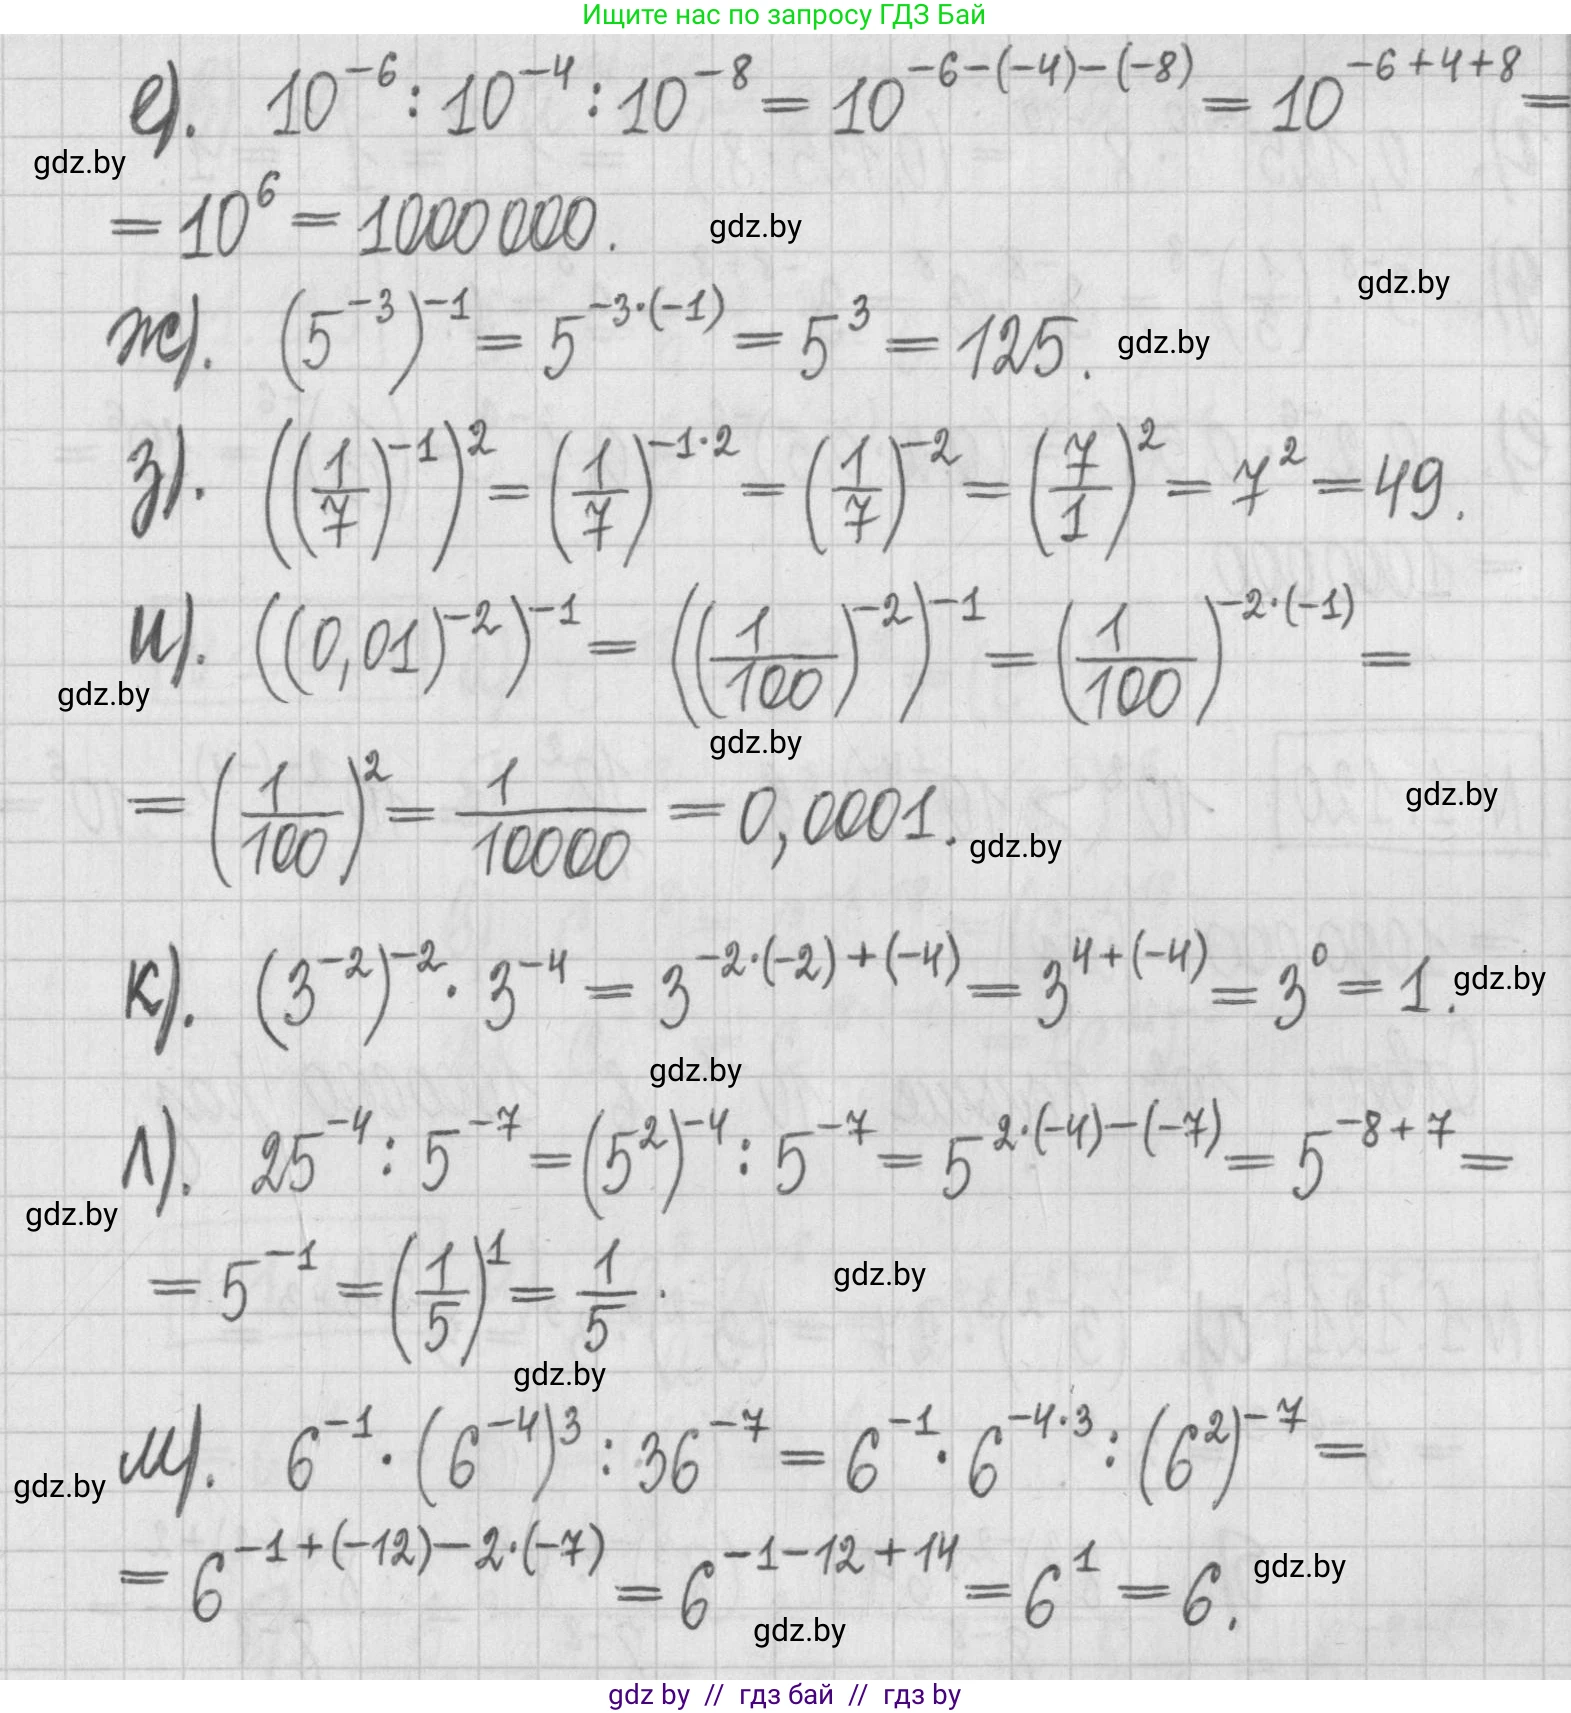 Ищите нас по запросу ГДЗ Бай
е). 10^{-6} : 10^{-4} : 10^{-8} = 10^{-6-(-4)-(-8)} = 10^{-6+4+8} =
gdz.by
= 10^{6} = 1000 000. gdz.by
gdz.by
ж). (5^{-3})^{-1} = 5^{-3·(-1)} = 5^{3} = 125. gdz.by
з). ((1/7)^{-1})^{2} = (1/7)^{-1·2} = (1/7)^{-2} = (7/1)^{2} = 7^{2} = 49.
и). ((0,01)^{-2})^{-1} = ((1/100)^{-2})^{-1} = (1/100)^{-2·(-1)} =
gdz.by
gdz.by
gdz.by
= (1/100)^{2} = 1/10000 = 0,0001. gdz.by
к). (3^{-2})^{-2} · 3^{-4} = 3^{-2·(-2)+(-4)} = 3^{4+(-4)} = 3^{0} = 1. gdz.by
gdz.by
л). 25^{-4} : 5^{-7} = (5^{2})^{-4} : 5^{-7} = 5^{2·(-4)-(-7)} = 5^{-8+7} =
gdz.by
= 5^{-1} = (1/5)^{1} = 1/5. gdz.by
gdz.by
м). 6^{-1} · (6^{-4})^{3} : 36^{-7} = 6^{-1} · 6^{-4·3} : (6^{2})^{-7} =
gdz.by
= 6^{-1+(-12)-2·(-7)} = 6^{-1-12+14} = 6^{1} = 6. gdz.by
gdz.by
gdz by // гдз бай // гдз by